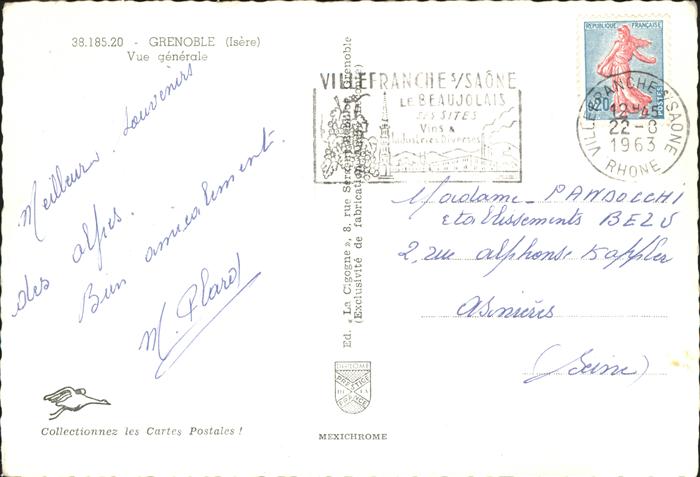 38.185.20 - GRENOBLE (Isère)
Vue générale
Meilleurs souvenirs
des alpes.
Bien amicalement.
M. Plard
Collectionnez les Cartes Postales !
Ed. « La Cigogne », 8, rue Grenoble
(Exclusivité de fabrication
PRESTIGE
DE LA
FRANCE
MEXICHROME
VILLEFRANCHE S/SAÔNE
LE BEAUJOLAIS
SES SITES
Vins &
Industries Diverses
REPUBLIQUE FRANÇAISE
0,20
POSTES
VILLEFRANCHE S/SAÔNE
12H45
22-8
1963
RHONE
Madame PANDOCCHI
Etablissements BEZU
2, rue alphonse Kappler
Asnières
(Seine)